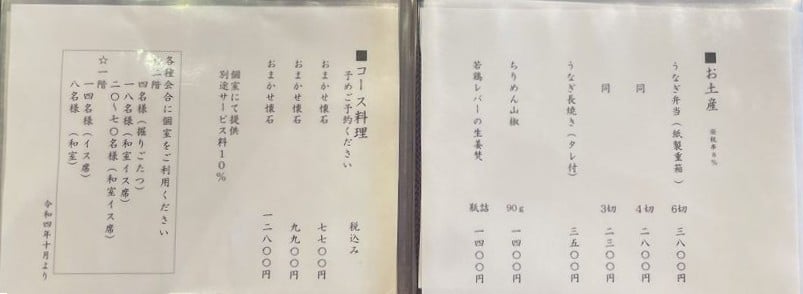 ■お土産 ※税率８％
うなぎ弁当（紙製重箱） 6切 三八〇〇円
同 4切 二八〇〇円
同 3切 二三〇〇円
うなぎ長焼き（タレ付） 三五〇〇円
ちりめん山椒 90g 一四〇〇円
若鶏レバーの生姜煮 瓶詰 一四〇〇円
■コース料理 税込み
予めご予約ください
おまかせ懐石 七七〇〇円
おまかせ懐石 九九〇〇円
おまかせ懐石 一二八〇〇円
個室にて提供
別途サービス料１０％
各種会合に個室をご利用ください
☆二階
四名様（掘りごたつ）
一八名様（和室イス席）
二〇〜七〇名様（和室イス席）
☆一階
一四名様（イス席）
八名様（和室）
令和四年十月より